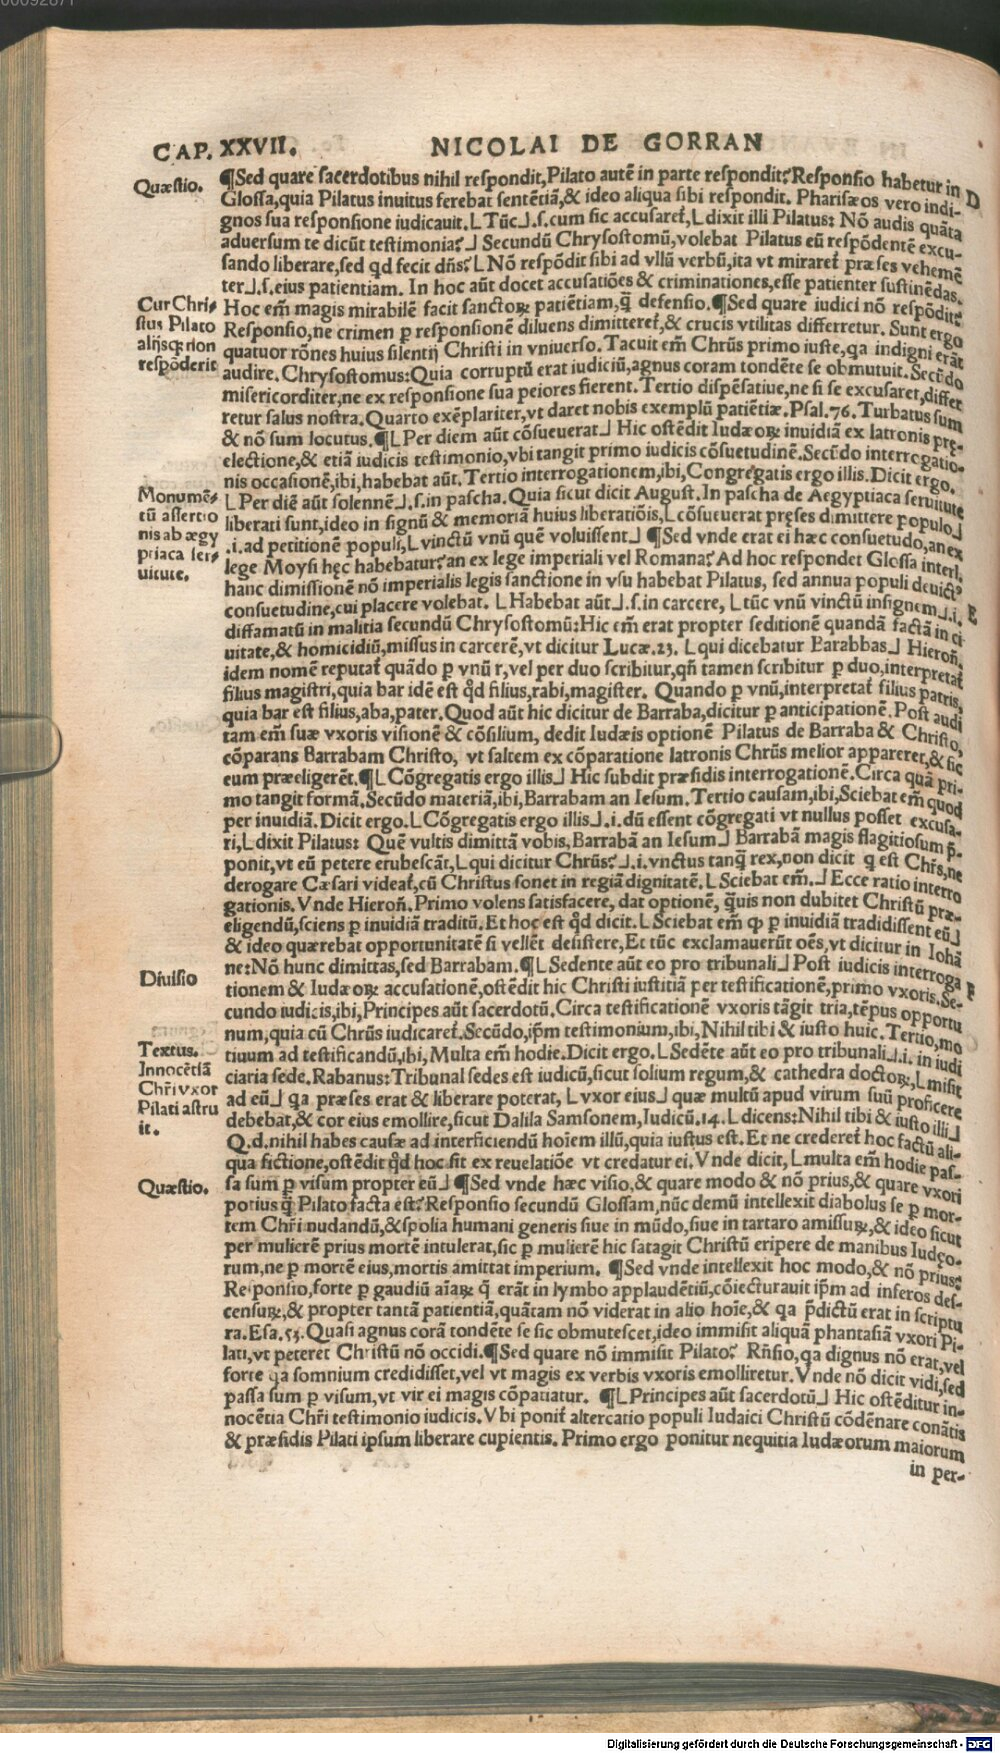 00092871
CAP. XXVII. NICOLAI DE GORRAN
Quæstio.
¶Sed quare sacerdotibus nihil respondit, Pilato autē in parte respondit? Responsio habetur in D
Glossa, quia Pilatus inuitus ferebat sentētiā, & ideo aliqua sibi respondit. Pharisæos vero indi-
gnos sua responsione iudicauit. L Tūc ⅃ .s. cum sic accusaret̉, L dixit illi Pilatus: Nō audis quāta
aduersum te dicūt testimonia? ⅃ Secundū Chrysostomū, volebat Pilatus eū respōdentē excu-
sando liberare, sed qd fecit dñs? L Nō respōdit sibi ad vllū verbū, ita vt miraret̉ præses vehemē
ter ⅃ .s. eius patientiam. In hoc aūt docet accusatiōes & criminationes, esse patienter sustinēdas.
Cur Chri-
stus Pilato
alijsq; non
respōderit
Hoc em̄ magis mirabilē facit sanctoꝝ patiētiam, q̄ defensio. ¶Sed quare iudici nō respōdit?
Responsio, ne crimen ꝑ responsionē diluens dimitteret̉, & crucis vtilitas differretur. Sunt ergo
quatuor rōnes huius silentij Christi in vniuerso. Tacuit em̄ Chrūs primo iuste, qa indigni erāt
audire. Chrysostomus: Quia corruptū erat iudiciū, agnus coram tondēte se obmutuit. Secūdo
misericorditer, ne ex responsione sua peiores fierent. Tertio dispēsatiue, ne si se excusaret, differ
retur salus nostra. Quarto exēplariter, vt daret nobis exemplū patiētiæ. Psal. 76. Turbatus sum
& nō sum locutus. ¶ L Per diem aūt cōsueuerat ⅃ Hic ostēdit Iudæoꝝ inuidiā ex latronis prę-
electione, & etiā iudicis testimonio, vbi tangit primo iudicis cōsuetudinē. Secūdo interrogatio-
nis occasionē, ibi, habebat aūt. Tertio interrogationem, ibi, Congregatis ergo illis. Dicit ergo.
Monumē-
tū assertio
nis ab ægy
ptiaca ser-
uitute.
L Per diē aūt solennē ⅃ .s. in pascha. Quia sicut dicit August. In pascha de Aegyptiaca seruitute
liberati sunt, ideo in signū & memoriā huius liberatiōis, L cōsueuerat pręses dimittere populo ⅃
.i. ad petitionē populi, L vinctū vnū quē voluissent ⅃ ¶Sed vnde erat ei hæc consuetudo, an ex
lege Moysi hęc habebatur? an ex lege imperiali vel Romana? Ad hoc respondet Glossa interl.
hanc dimissionē nō imperialis legis sanctione in vsu habebat Pilatus, sed annua populi deuicti
consuetudine, cui placere volebat. L Habebat aūt ⅃ .s. in carcere, L tūc vnū vinctū insignem ⅃ .i. E
diffamatū in malitia secundū Chrysostomū: Hic em̄ erat propter seditionē quandā factā in ci
uitate, & homicidiū, missus in carcerē, vt dicitur Lucæ. 23. L qui dicebatur Barabbas ⅃ Hieroñ.
idem nomē reputat̉ quādo ꝑ vnū r, vel per duo scribitur, qñ tamen scribitur ꝑ duo, interpretat̉
filius magistri, quia bar idē est qd filius, rabi, magister. Quando ꝑ vnū, interpretat̉ filius patris,
quia bar est filius, aba, pater. Quod aūt hic dicitur de Barraba, dicitur ꝑ anticipationē. Post audi
tam em̄ suæ vxoris visionē & cōsilium, dedit Iudæis optionē Pilatus de Barraba & Christo,
cōparans Barrabam Christo, vt saltem ex cōparatione latronis Chrūs melior appareret, & sic
eum præeligerēt. ¶ L Cōgregatis ergo illis ⅃ Hic subdit præsidis interrogationē. Circa quā pri-
mo tangit formā. Secūdo materiā, ibi, Barrabam an Iesum. Tertio causam, ibi, Sciebat em̄ quod
per inuidiā. Dicit ergo. L Cōgregatis ergo illis ⅃ .i. dū essent cōgregati vt nullus posset excusa-
ri, L dixit Pilatus: Quē vultis dimittā vobis, Barrabā an Iesum ⅃ Barrabā magis flagitiosum ꝓ-
ponit, vt eū petere erubescāt, L qui dicitur Chrūs? ⅃ .i. vnctus tanq̄ rex, non dicit q est Chr̄s, ne
derogare Cæsari videat̉, cū Christus sonet in regiā dignitatē. L Sciebat em̄. ⅃ Ecce ratio interro
gationis. Vnde Hieroñ. Primo volens satisfacere, dat optionē, q̄uis non dubitet Christū præ-
eligendū, sciens ꝑ inuidiā traditū. Et hoc est qd dicit. L Sciebat em̄ ꝙ ꝑ inuidiā tradidissent eū ⅃
& ideo quærebat opportunitatē si vellēt desistere, Et tūc exclamauerūt oēs, vt dicitur in Iohā
ne: Nō hunc dimittas, sed Barrabam. ¶ L Sedente aūt eo pro tribunali ⅃ Post iudicis interroga F
Diuisio
tionem & Iudæoꝝ accusationē, ostēdit hic Christi iustitiā per testificationē, primo vxoris. Se-
cundo iudicis, ibi, Principes aūt sacerdotū. Circa testificationē vxoris tāgit tria, tēpus opportu
num, quia cū Chrūs iudicaret̉. Secūdo, ip̄m testimonium, ibi, Nihil tibi & iusto huic. Tertio, mo
Textus.
Innocētiā
Chr̄i vxor
Pilati astru
it.
tiuum ad testificandū, ibi, Multa em̄ hodie. Dicit ergo. L Sedēte aūt eo pro tribunali ⅃ .i. in iudi
ciaria sede. Rabanus: Tribunal sedes est iudicū, sicut solium regum, & cathedra doctoꝝ, L misit
ad eū ⅃ qa præses erat & liberare poterat, L vxor eius ⅃ quæ multū apud virum suū proficere
debebat, & cor eius emollire, sicut Dalila Samsonem, Iudicū. 14. L dicens: Nihil tibi & iusto illi ⅃
Q. d. nihil habes causæ ad interficiendū hoīem illū, quia iustus est. Et ne crederet̉ hoc factū ali-
qua fictione, ostēdit qd hoc sit ex reuelatiōe vt credatur ei. Vnde dicit, L multa em̄ hodie pas-
Quæstio.
sa sum ꝑ visum propter eū ⅃ ¶Sed vnde hæc visio, & quare modo & nō prius, & quare vxori
potius q̄ Pilato facta est? Responsio secundū Glossam, nūc demū intellexit diabolus se ꝑ mor-
tem Chr̄i nudandū, & spolia humani generis siue in mūdo, siue in tartaro amissuꝝ, & ideo sicut
per mulierē prius mortē intulerat, sic ꝑ mulierē hic satagit Christū eripere de manibus Iudęo-
rum, ne ꝑ mortē eius, mortis amittat imperium. ¶Sed vnde intellexit hoc modo, & nō prius?
Responsio, forte ꝑ gaudiū aīaꝝ q̄ erāt in lymbo applaudētiū, cōiecturauit ip̄m ad inferos des-
censuꝝ, & propter tantā patientiā, quātam nō viderat in alio hoīe, & qa p̄dictū erat in scriptu
ra. Esa. 53. Quasi agnus corā tondēte se sic obmutescet, ideo immisit aliquā phantasiā vxori Pi-
lati, vt peteret Christū nō occidi. ¶Sed quare nō immisit Pilato? Rñsio, qa dignus nō erat, vel
forte qa somnium credidisset, vel vt magis ex verbis vxoris emolliretur. Vnde nō dicit vidi, sed
passa sum ꝑ visum, vt vir ei magis cōpatiatur. ¶ L Principes aūt sacerdotū ⅃ Hic ostēditur in-
nocētia Chr̄i testimonio iudicis. Vbi ponit̉ altercatio populi Iudaici Christū cōdēnare conātis
& præsidis Pilati ipsum liberare cupientis. Primo ergo ponitur nequitia Iudæorum maiorum
in per-
Digitalisierung gefördert durch die Deutsche Forschungsgemeinschaft - DFG